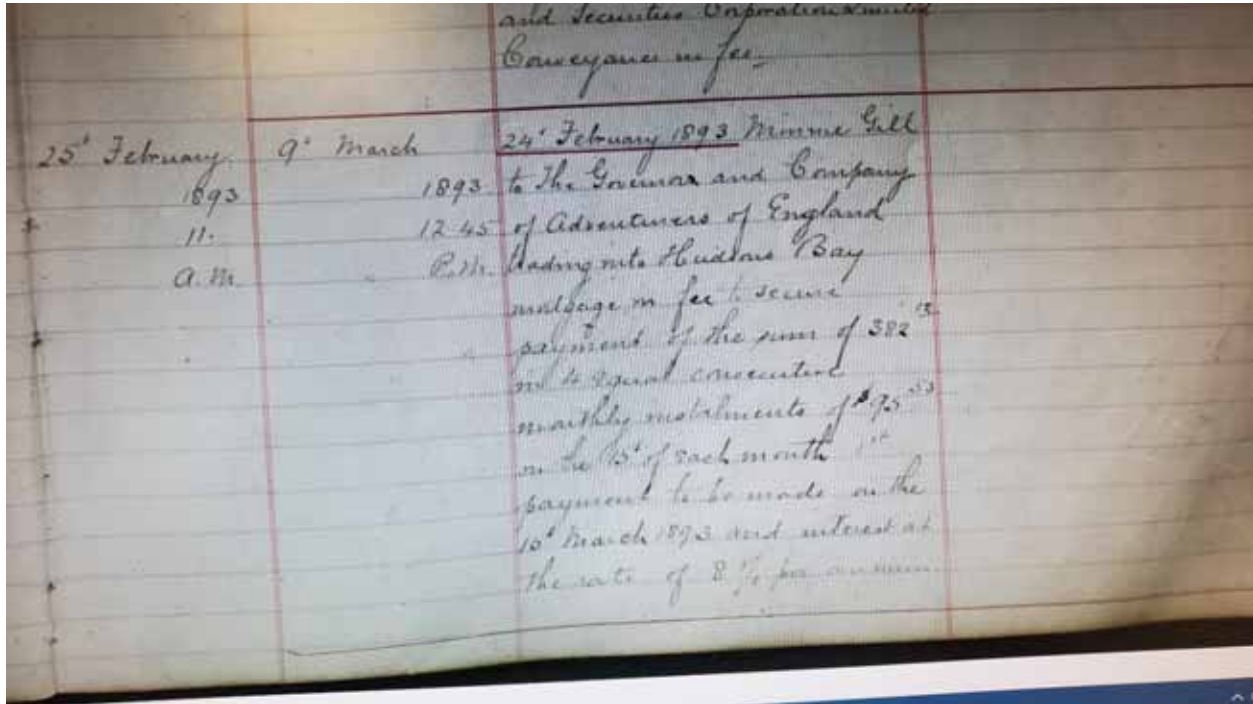 and Securities Corporation Limited
Conveyance in fee
25' February
1893
11.
A.M.
9' March
1893
12 45
P.M.
24' February 1893 Minnie Gill
to The Governor and Company
of Adventurers of England
trading into Hudsons Bay
mortgage in fee to secure
payment of the sum of 382
in 4 equal consecutive
monthly instalments of $95 53
on the of each month 1st
payment to be made on the
10' March 1893 and interest at
the rate of 8 % per annum